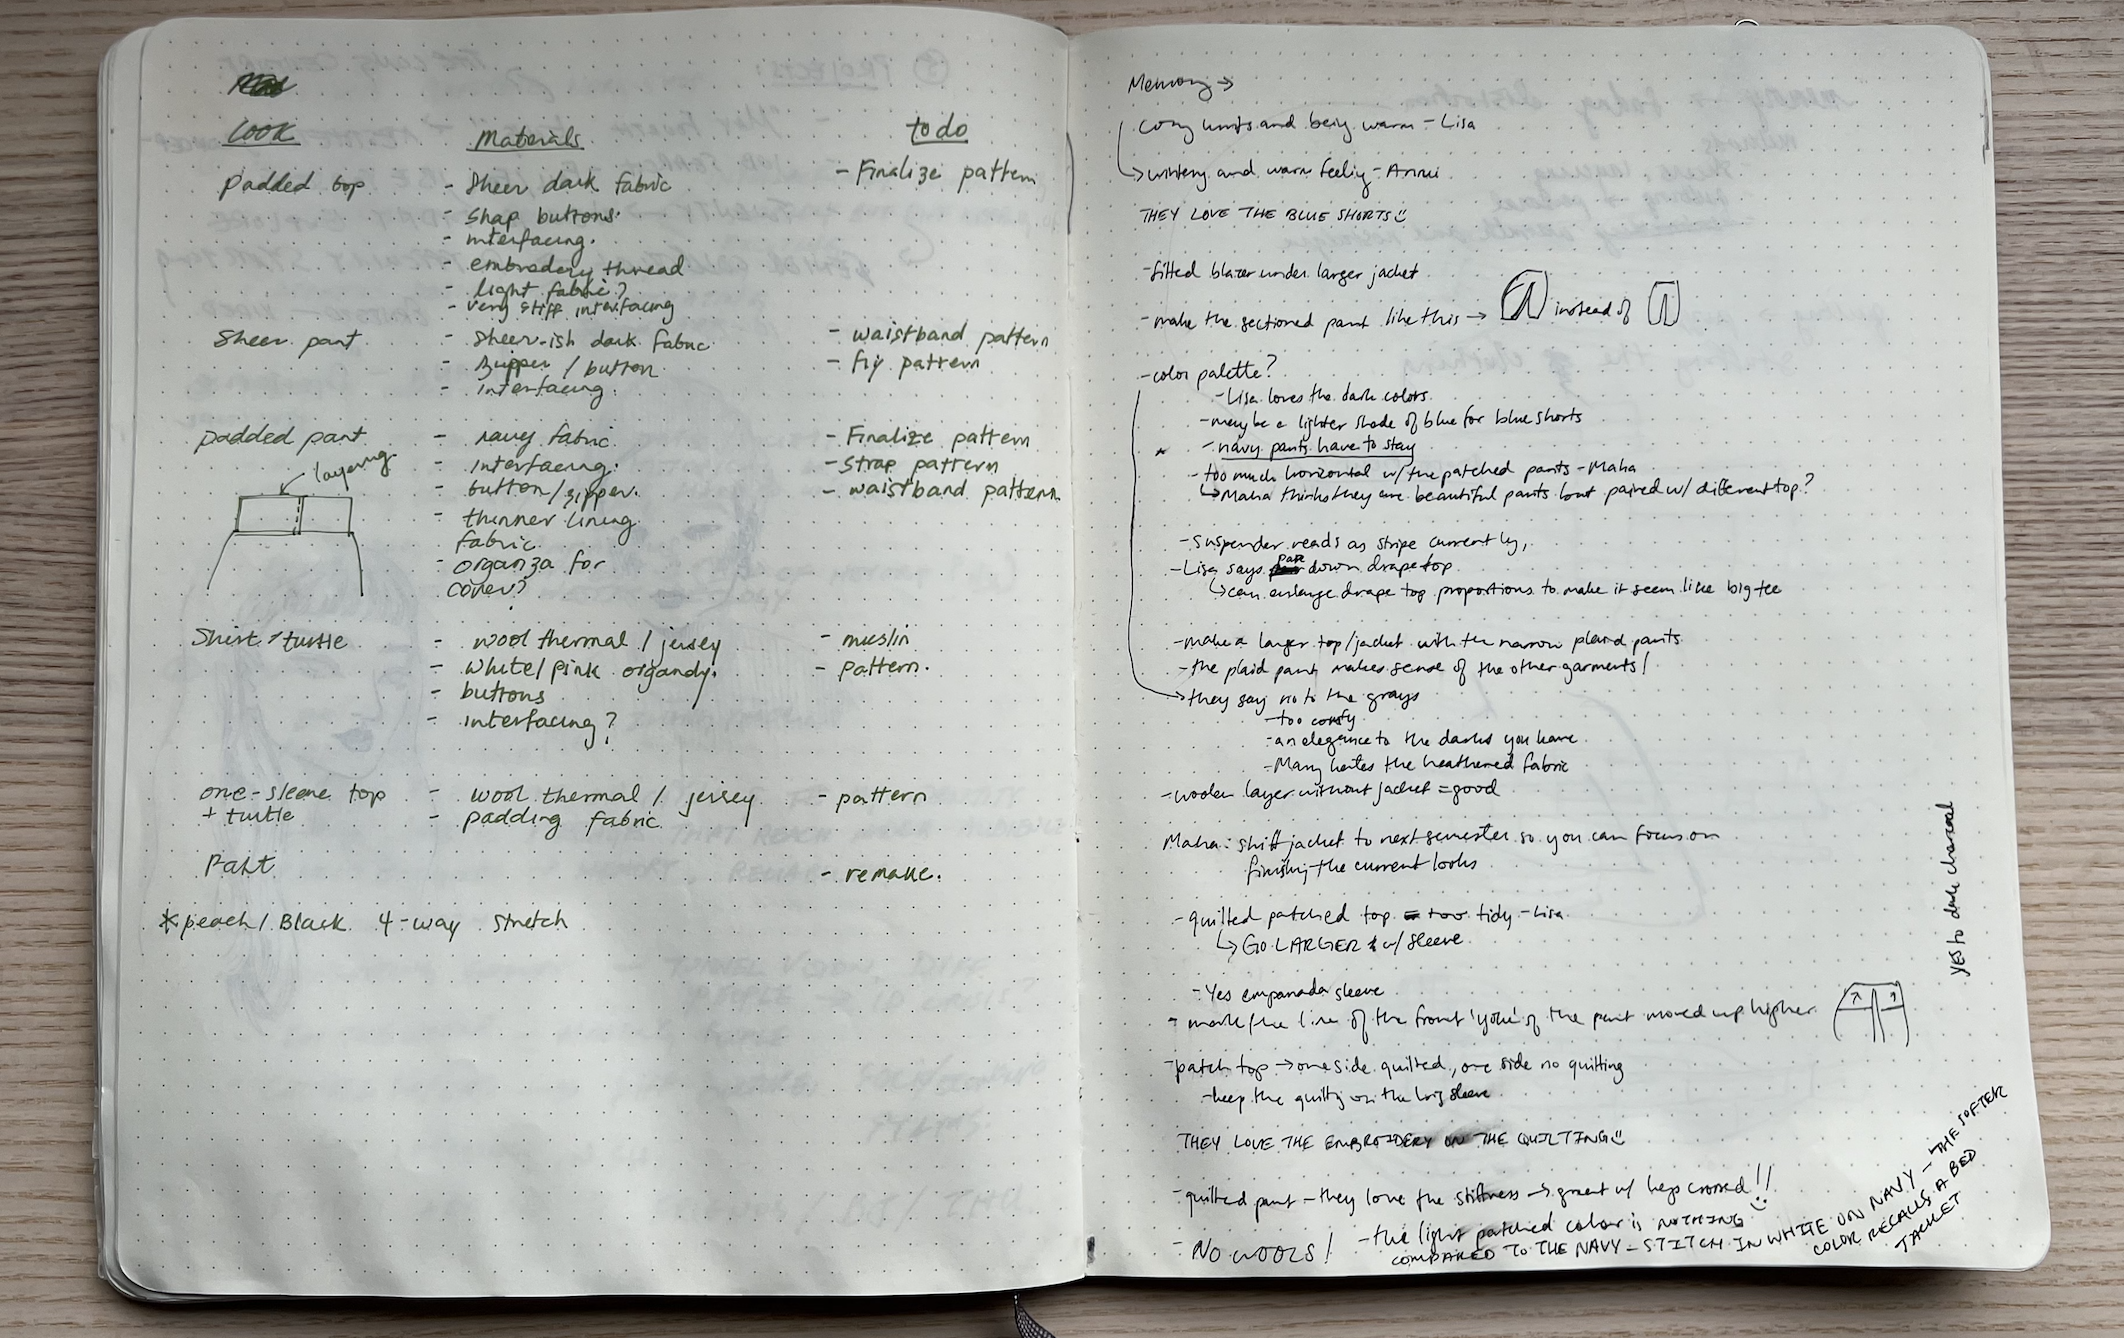 LOOK
Materials
to do
padded top
- Sheer dark fabric
- Snap buttons.
- interfacing.
- embrodery thread
- light fabric?
- very stiff interfacing
- Finalize pattern
Sheer pant
- Sheer-ish dark fabric
- Zipper / button
- interfacing.
- waistband pattern
- fly pattern
padded pant
layering
- navy fabric
- interfacing.
- button/zipper.
- thinner lining
fabric
- organza for
cover?
- Finalize pattern
- Strap pattern
- waistband pattern
Shirt / turtle
- wool thermal / jersey
- white/pink organdy.
- buttons
- interfacing?
- muslin
- pattern.
one-sleeve top
+ turtle
- wool thermal / jersey
- padding fabric
- pattern
Pant
- remake.
*peach / Black 4-way stretch
Memory →
cozy knits and being warm - Lisa
↳ wintery and warm feeling - Annui
THEY LOVE THE BLUE SHORTS☺
- fitted blazer under larger jacket
- make the sectioned pant like this → instead of
- color palette?
- Lisa loves the dark colors
- maybe a lighter shade of blue for blue shorts
* - navy pants have to stay
- too much horizontal w/ the patched pants - Maha
↳ Maha thinks they are beautiful pants but paired w/ different top?
- suspender reads as stripe currently,
- Lisa says pare down drape top
↳ can enlarge drape top proportions to make it seem like big tee
- make a larger top/jacket with the narrow plaid pants
- the plaid pant makes sense of the other garments!
→ they say no to the grays
- too comfy
- an elegance to the darks you have
- Many hates the heathered fabric
- woolen layer without jacket = good
Maha: shift jacket to next semester so you can focus on
finishing the current looks
- quilted patched top = too tidy - Lisa
↳ GO LARGER w/ sleeve
- Yes empanada sleeve
- mark the line of the front 'yoke' of the pant moved up higher
- patch top → one side quilted, one side no quilting
- keep the quilting on the long sleeve
THEY LOVE THE EMBROIDERY ON THE QUILTING☺
- quilted pant - they love the stiffness → great w/ legs crossed!!
- NO WOOLS!
- the light patched colour is NOTHING
COMPARED TO THE NAVY - STITCH IN WHITE ON NAVY - THE SOFTER
COLOR RECALLS A BED
JACKET
YES to dark charcoal